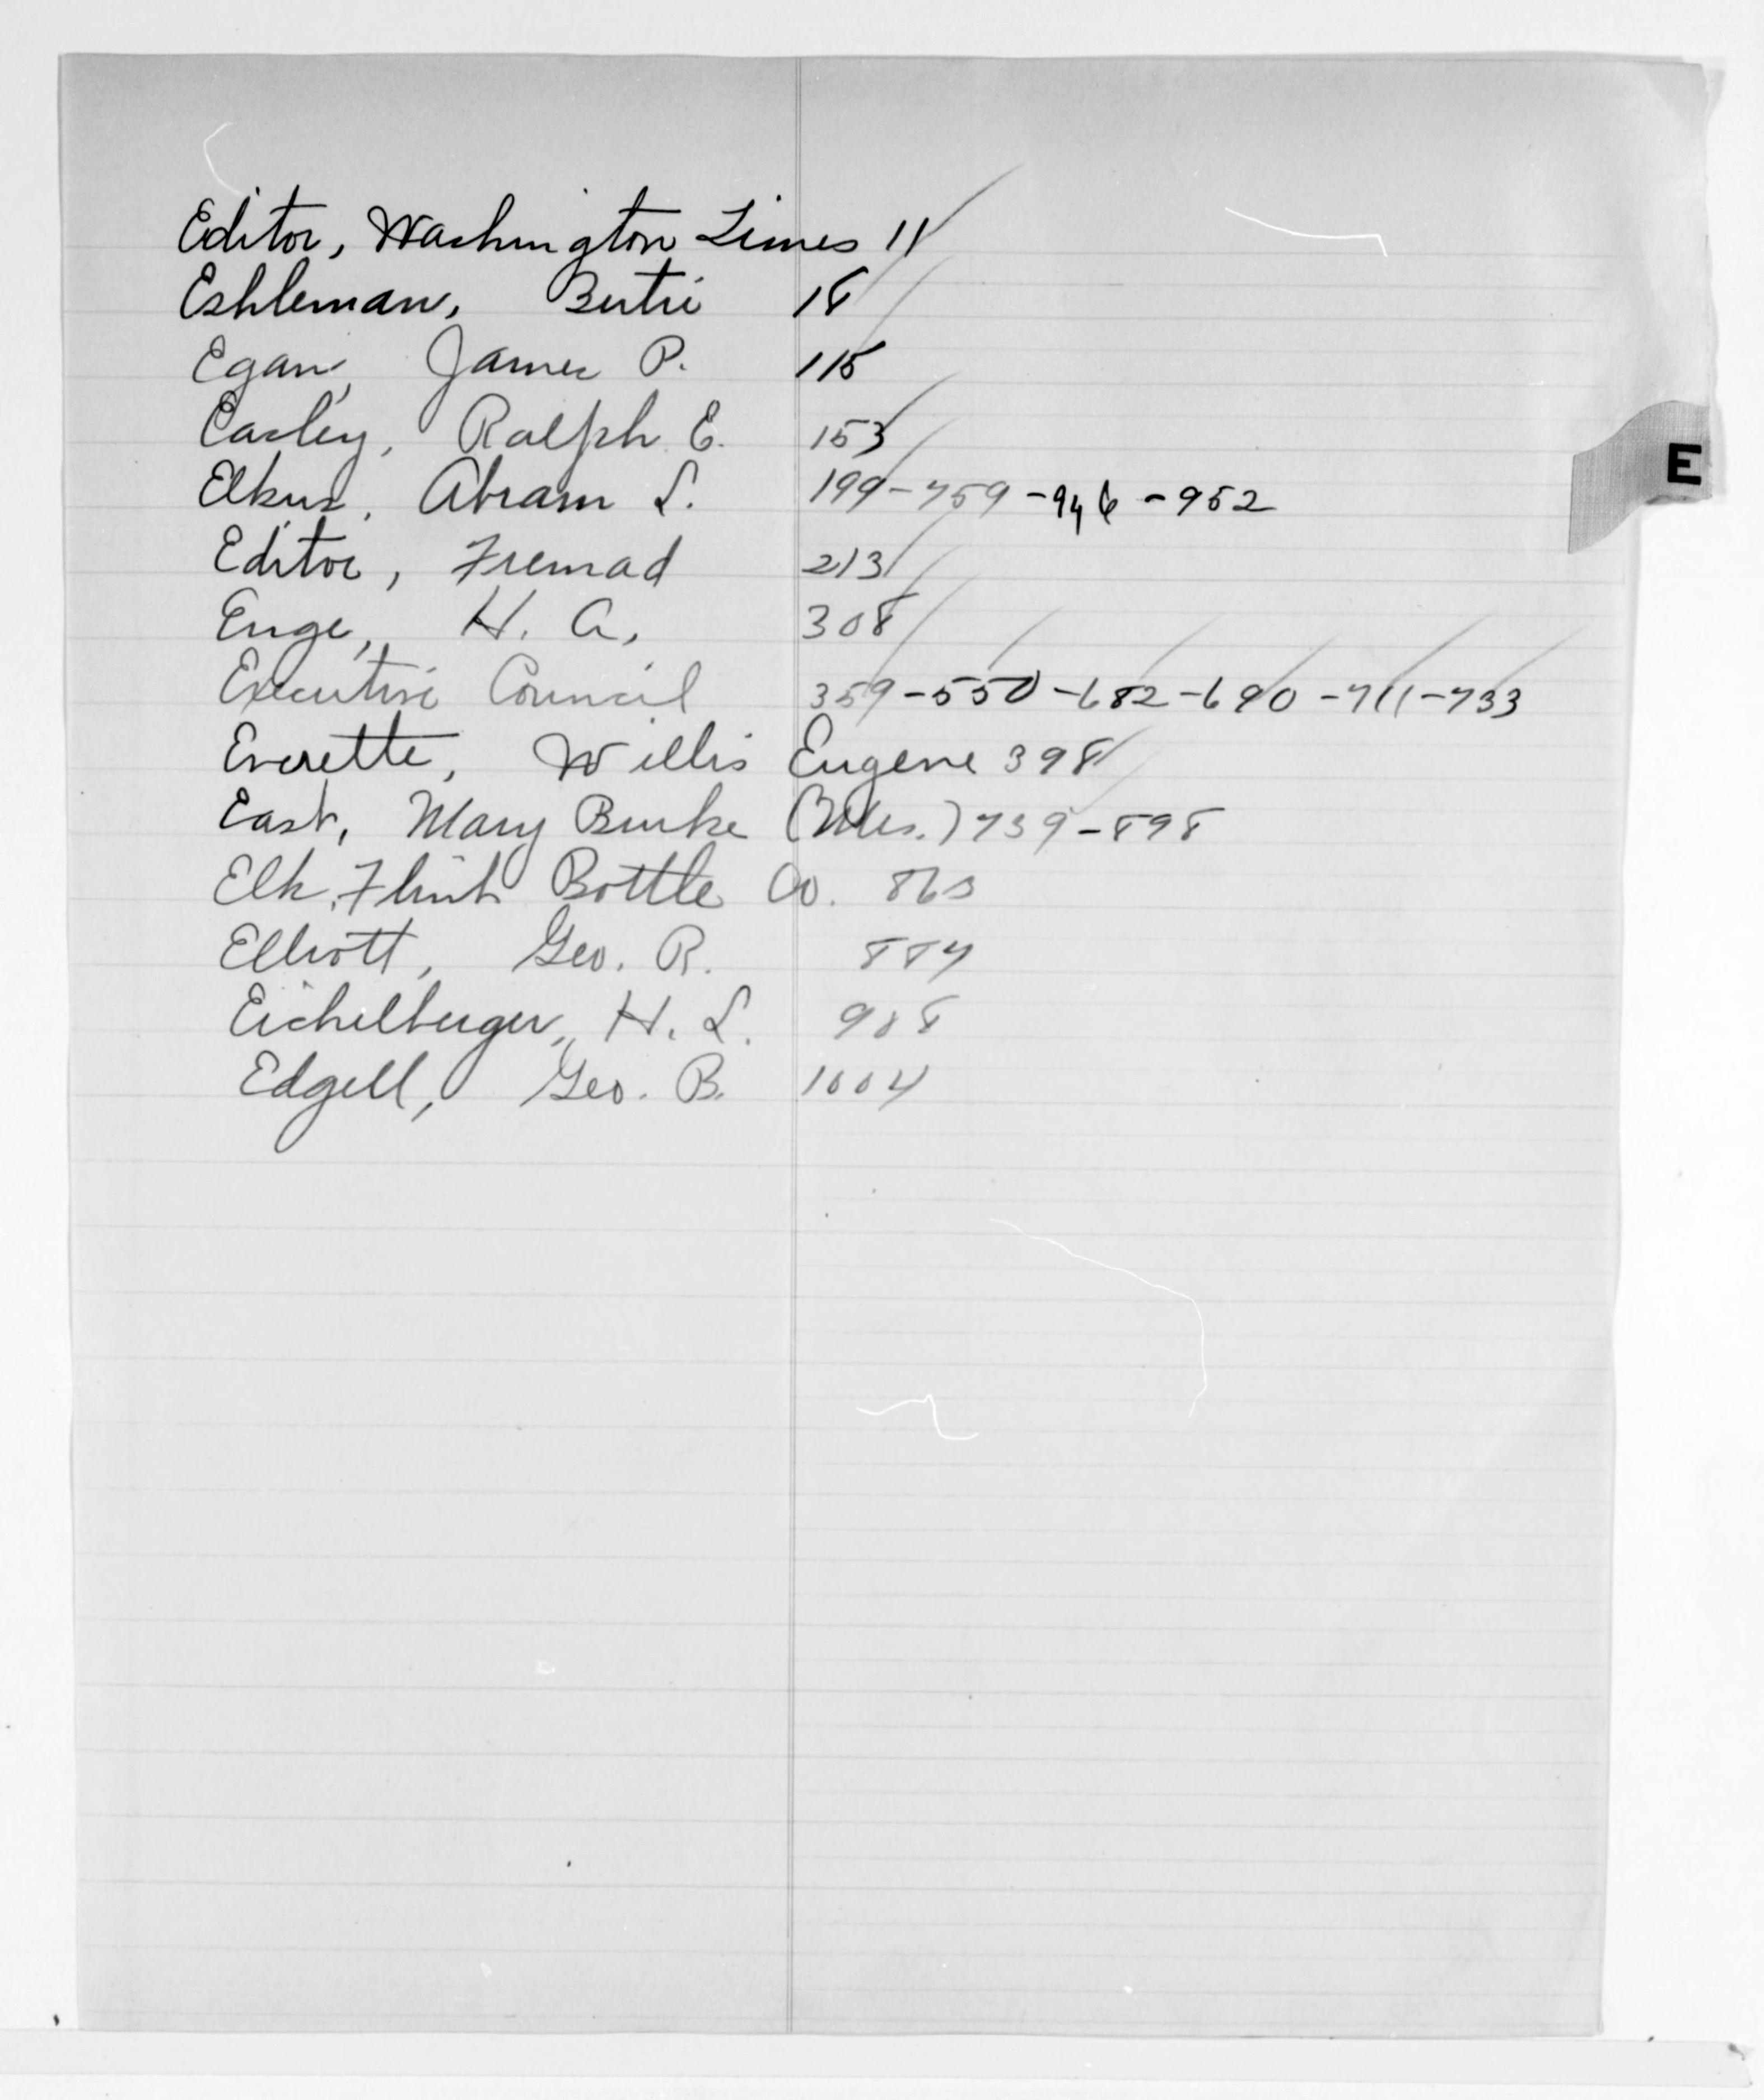 Editor, Washington Times 11
Eshleman, Bertie 18
Egan, James P. 115
Easley, Ralph E. 153
Elkus, Abram L. 199-759-946-952
Editor, Fremad 213
Enge, H. A. 308
Executive Council 359-550-682-690-711-733
Everette, Willis Eugene 398
East, Mary Burke (Mrs.) 739-898
Elk Flint Bottle Co. 863
Elliott, Geo. R. 887
Eichelberger, H. L. 988
Edgell, Geo. B. 1004
E